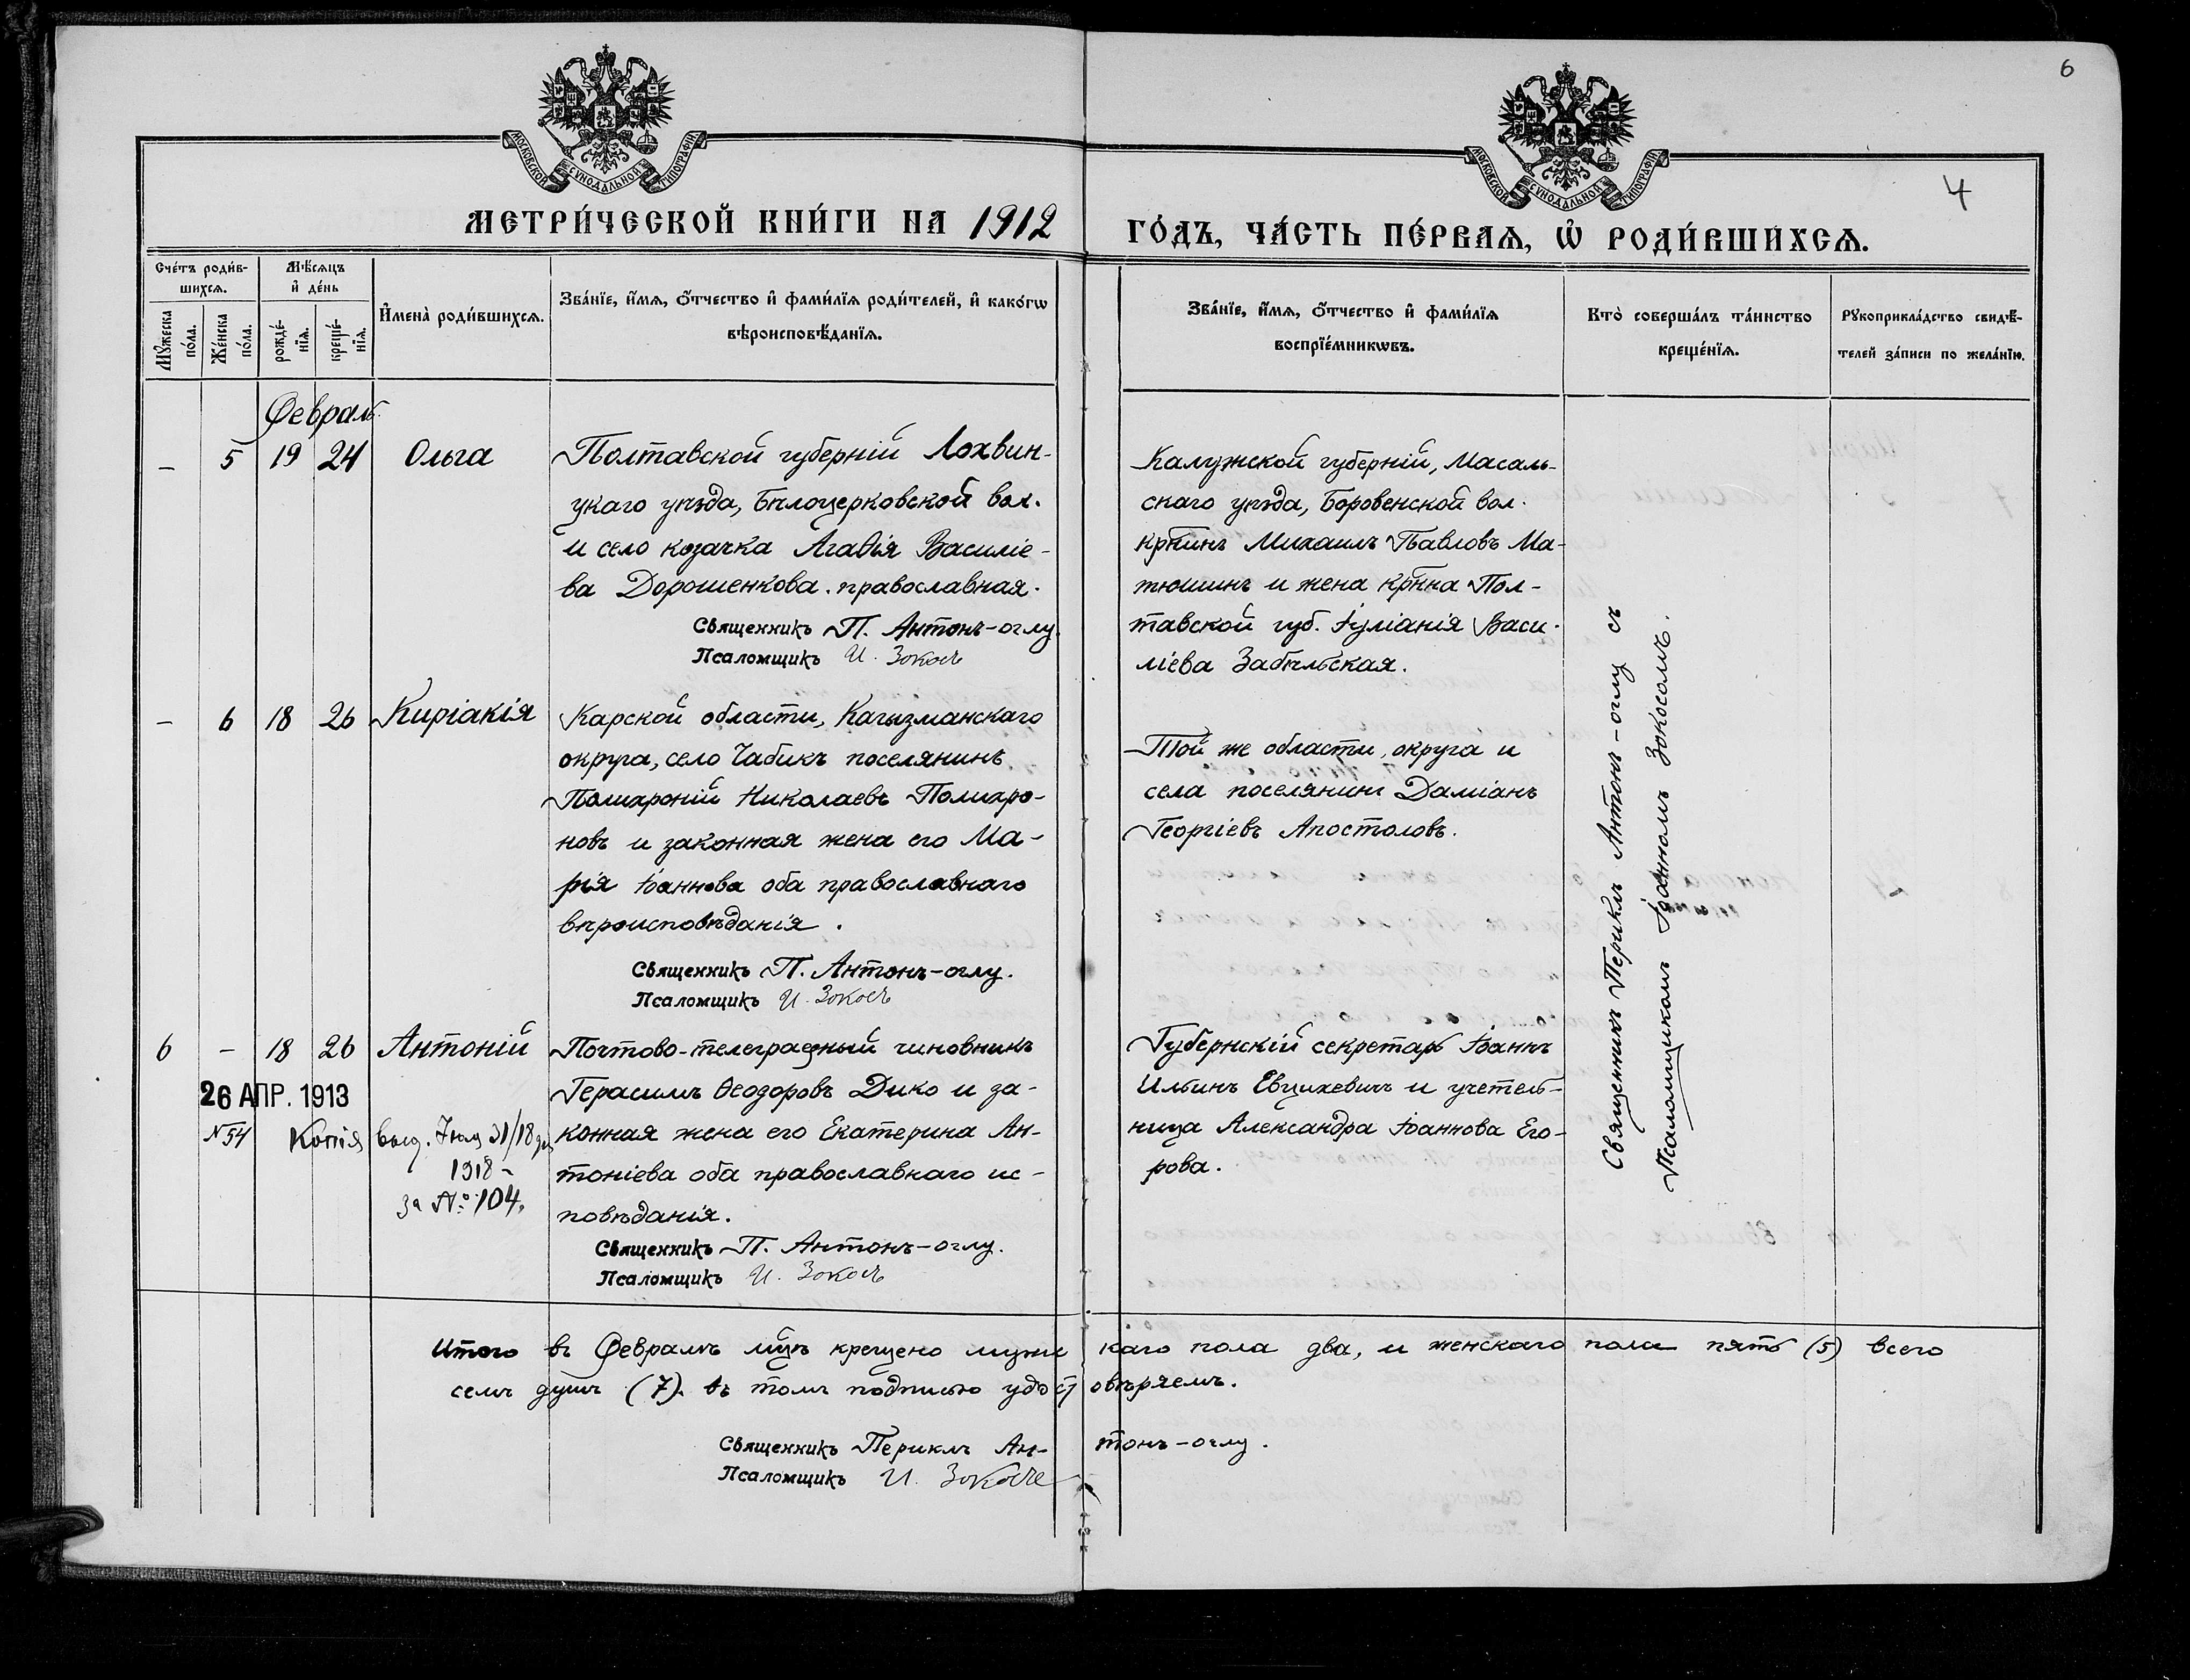 6
4
МОСКОВСКОЙ СУНОДАЛЬНОЙ ТИПОГРАФІИ.
МОСКОВСКОЙ СУНОДАЛЬНОЙ ТИПОГРАФІИ.
МЕТРИ́ЧЕСКОЙ КНИ́ГИ НА 1912 ГО́ДЪ, ЧА́СТЬ ПЕ́РВАѦ, Ѡ РОДИ́ВШИХСѦ.
Сче́тъ роди́в-
шихсѧ.
Мꙋ́жеска
по́ла.
Же́нска
по́ла.
Мѣ́сѧцъ
и҆ де́нь
рожде́-
нїѧ.
креще́-
нїѧ.
И҆мена̀ роди́вшихсѧ.
Зва́нїе, и҆́мѧ, ѻ҆́тчество и҆ фами́лїѧ роди́телей, и҆ како́гѡ
вѣроисповѣ́данїѧ.
Зва́нїе, и҆́мѧ, ѻ҆́тчество и҆ фами́лїѧ
воспрїе́мникѡвъ.
Кто̀ соверша́лъ та́инство
креще́нїѧ.
Рꙋкоприкла́дство свидѣ́-
телей за́писи по жела́нїю.
Февраль.
– 5 19 24 Ольга
Полтавской губерній Лохвин-
цкаго уѣзда, Бѣлоцерковской вол.
и село козачка Агаѳія Василіе-
ва Дорошенкова. православная.
Священникъ П. Антонъ-оглу.
Псаломщикъ И. Зокосъ
Калужской губерній, Масаль-
скаго уѣзда, Боровенской вол.
крнинъ Михаилъ Павловъ Ма-
тюшинъ и жена крнка Пол-
тавской губ. Іуліанія Васи-
ліева Забѣльская.
– 6 18 26 Киріакія
Карской области, Кагызманскаго
округа, село Чабикъ поселянинъ
Полихроній Николаевъ Полихро-
новъ и законная жена его Ма-
рія Іоаннова оба православнаго
вѣроисповѣданія.
Священникъ П. Антонъ-оглу.
Псаломщикъ И. Зокосъ
Той же области, округа и
села поселянинъ Даміанъ
Георгіевъ Апостоловъ.
6 – 18 26 Антоній
26 АПР. 1913
№ 54
Копія выд. 31/18
1918 –
за №: 104.
Почтово-телеграфный чиновникъ
Герасимъ Ѳеодоровъ Дико и за-
конная жена его Екатерина Ан-
тоніева оба православнаго ис-
повѣданія.
Священникъ П. Антонъ-оглу.
Псаломщикъ И. Зокосъ
Губернскій секретарь Іоаннъ
Ильинъ Евцихевичъ и учетель-
ница Александра Іоаннова Его-
рова.
Священникъ Периклъ Антонъ-оглу съ
Псаломщикомъ Іоанномъ Зокосомъ.
Итого въ Февралѣ мцѣ крещено мужскаго пола два, и женскаго пола пять (5) всего
семъ душъ (7). въ томъ подписью удостовѣряемъ.
Священникъ Периклъ Антонъ-оглу.
Псаломщикъ И. Зокосъ